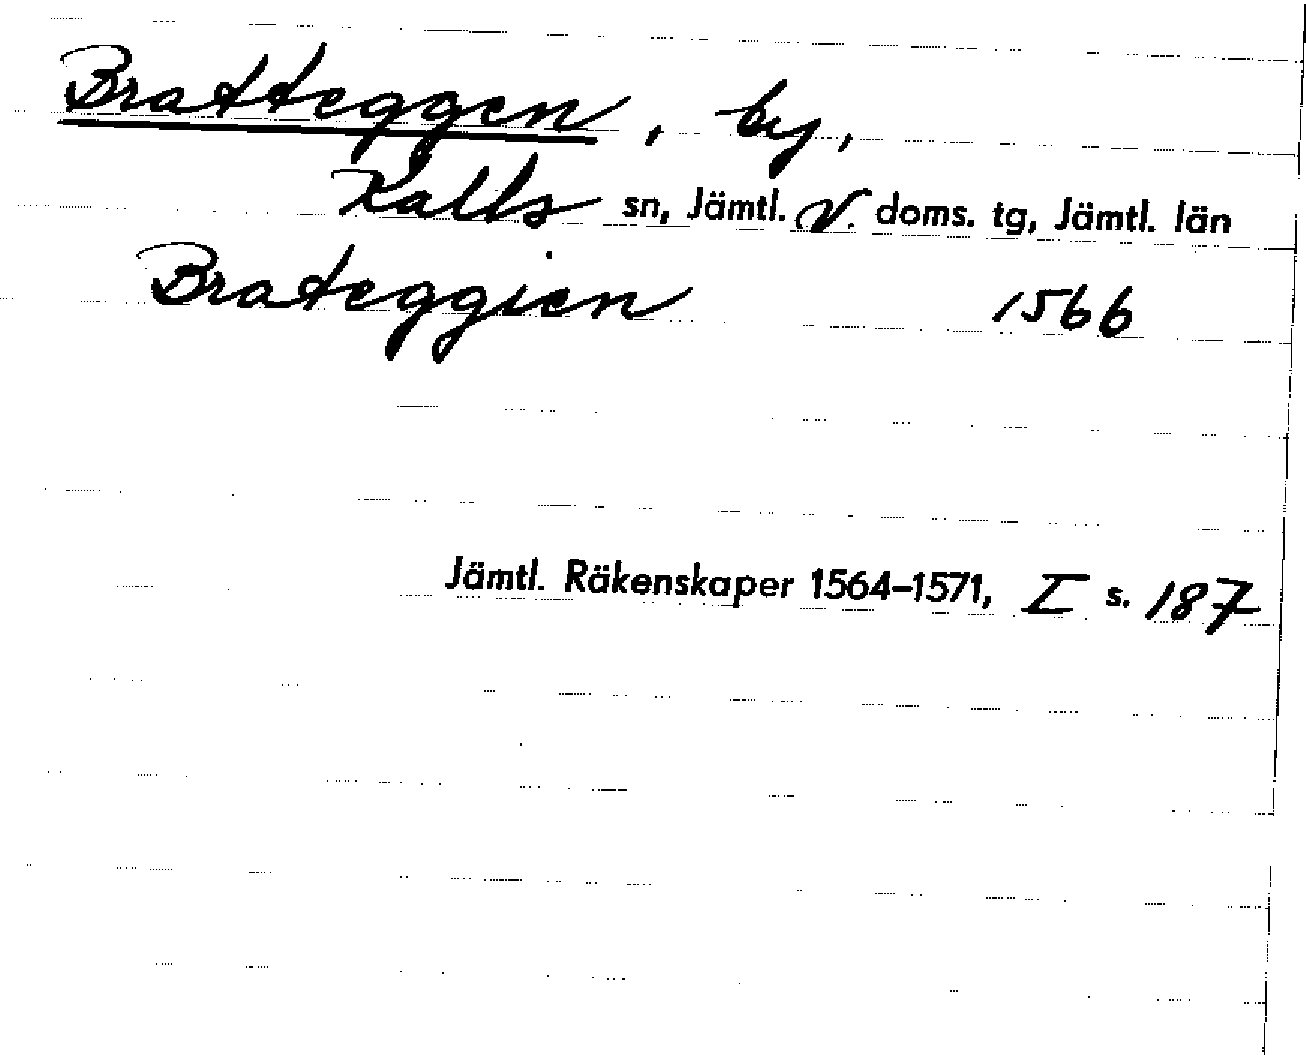 Bratteggen, by,
Kalls sn, Jämtl. V. doms. tg, Jämtl. län
Brateggien 1566
Jämtl. Räkenskaper 1564–1571, I s. 187